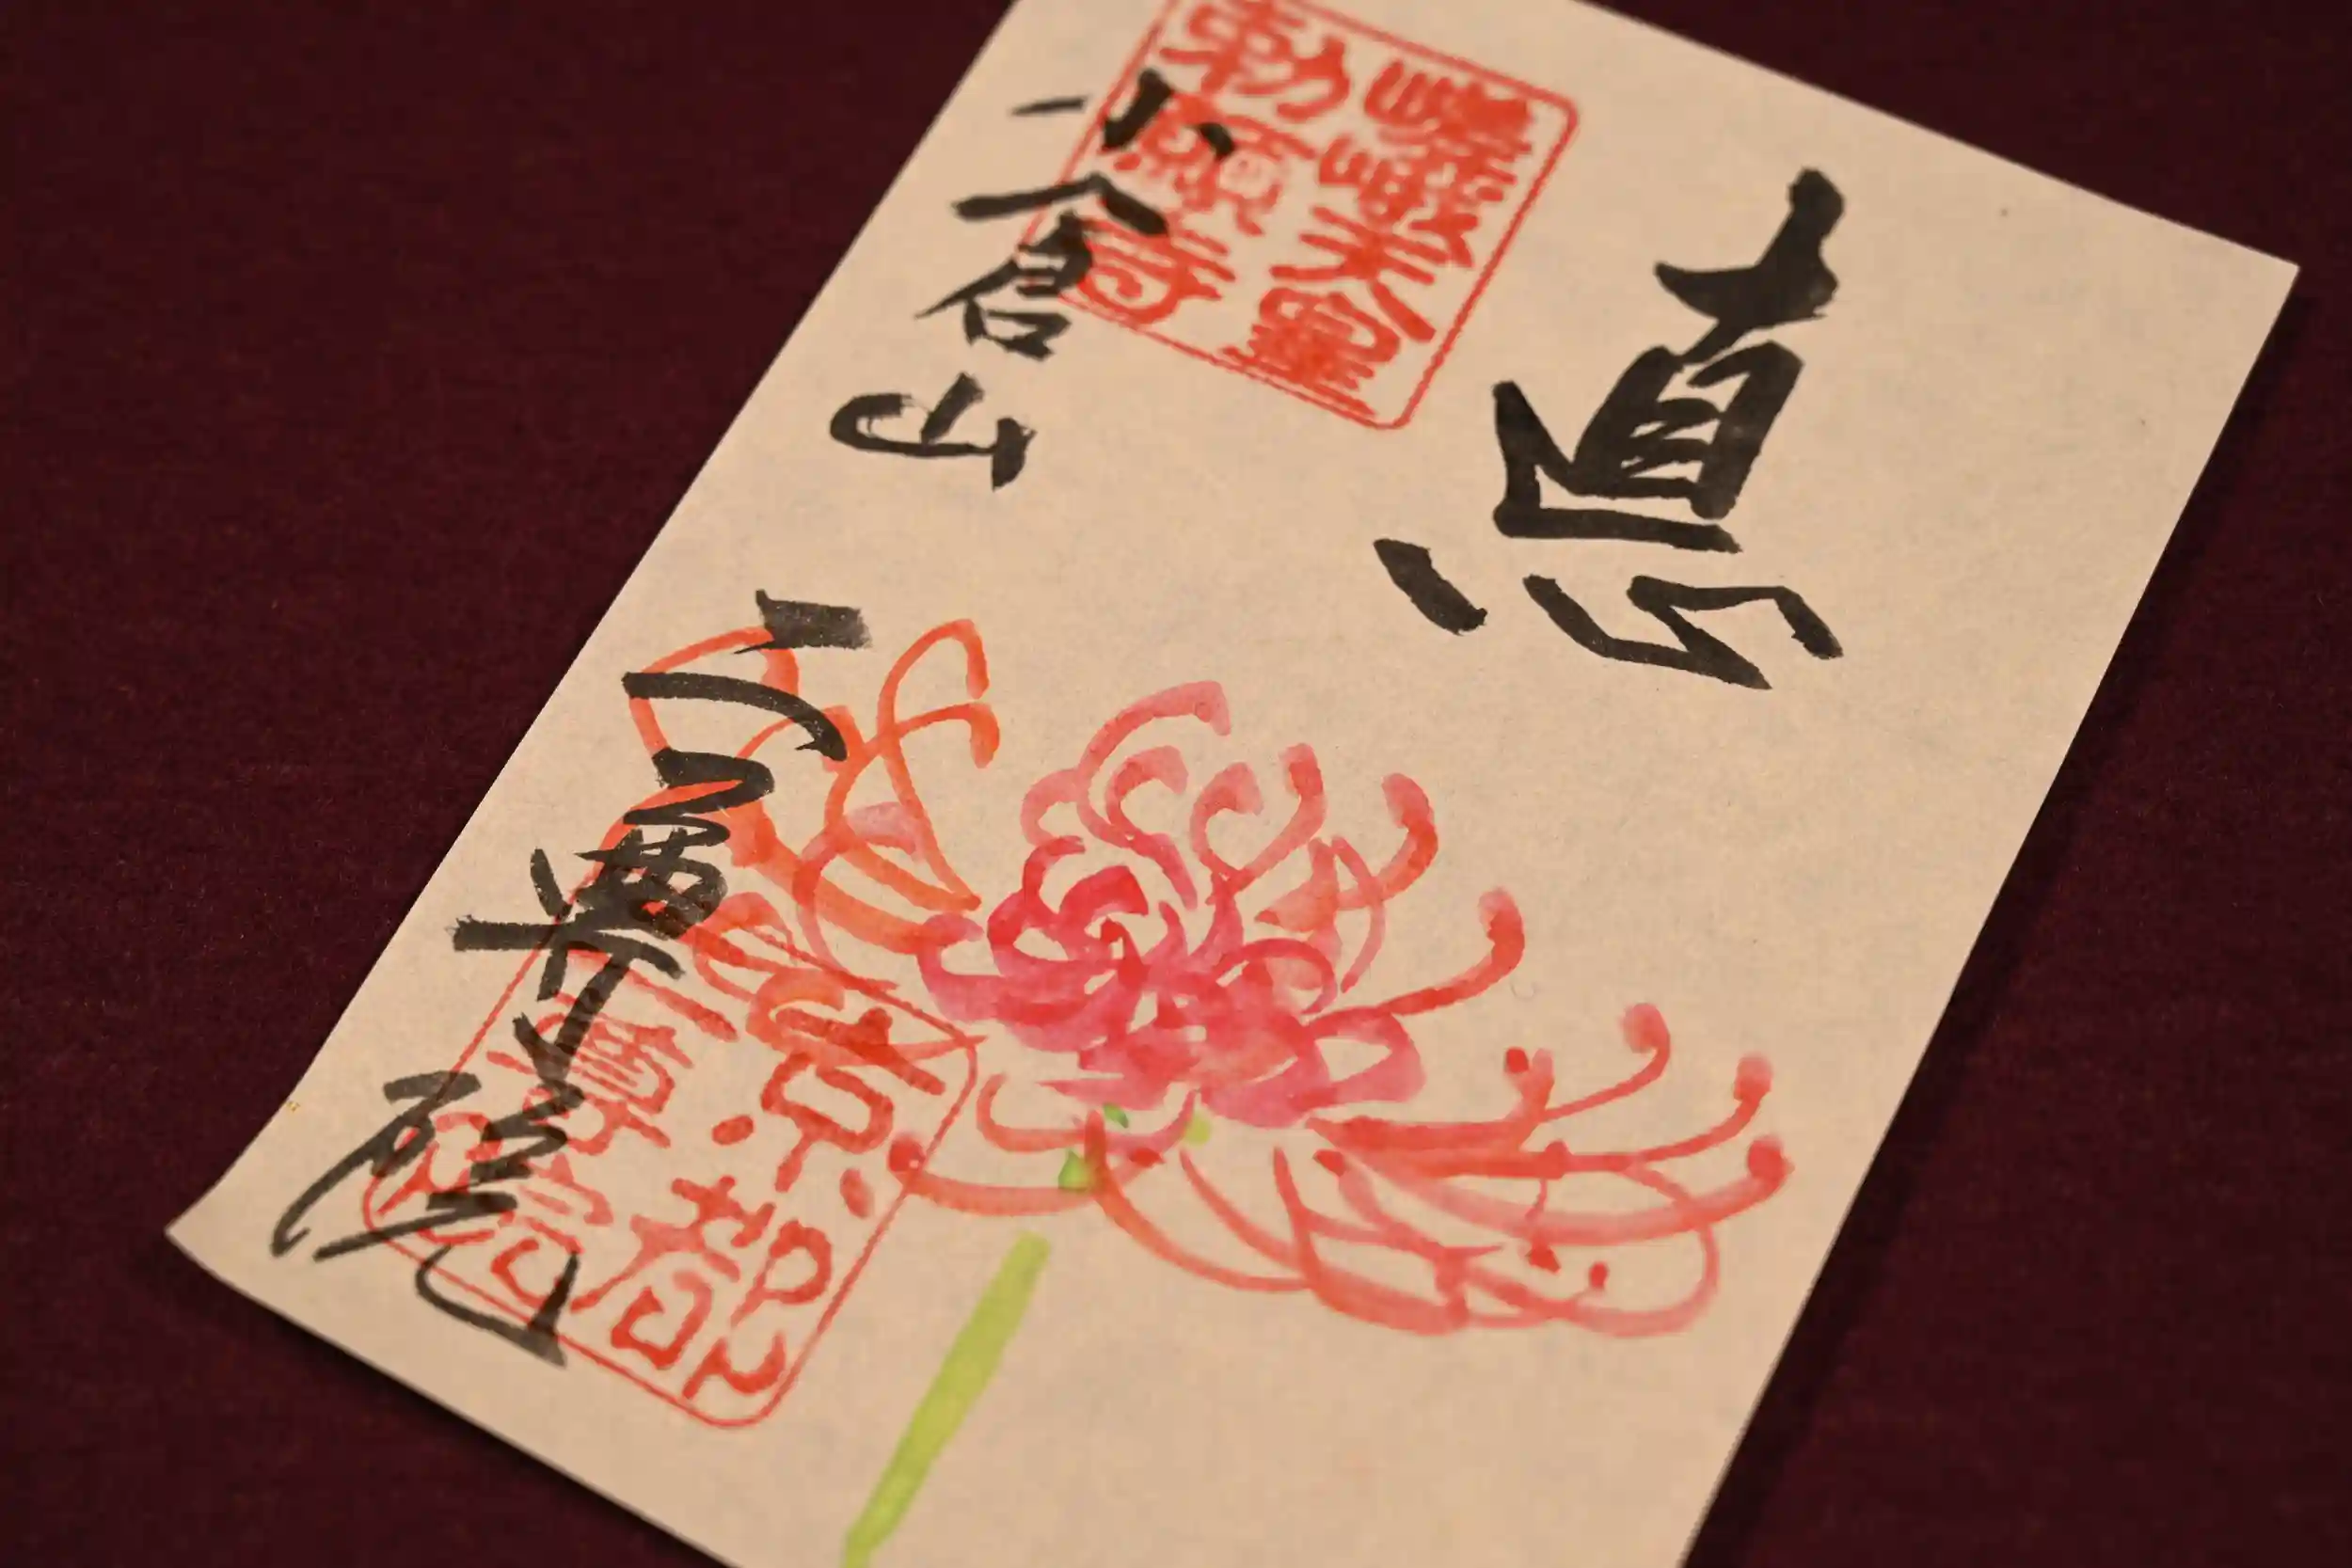 悳
嵯峨天皇
勅願寺
小倉山
二尊院
京都
二尊院